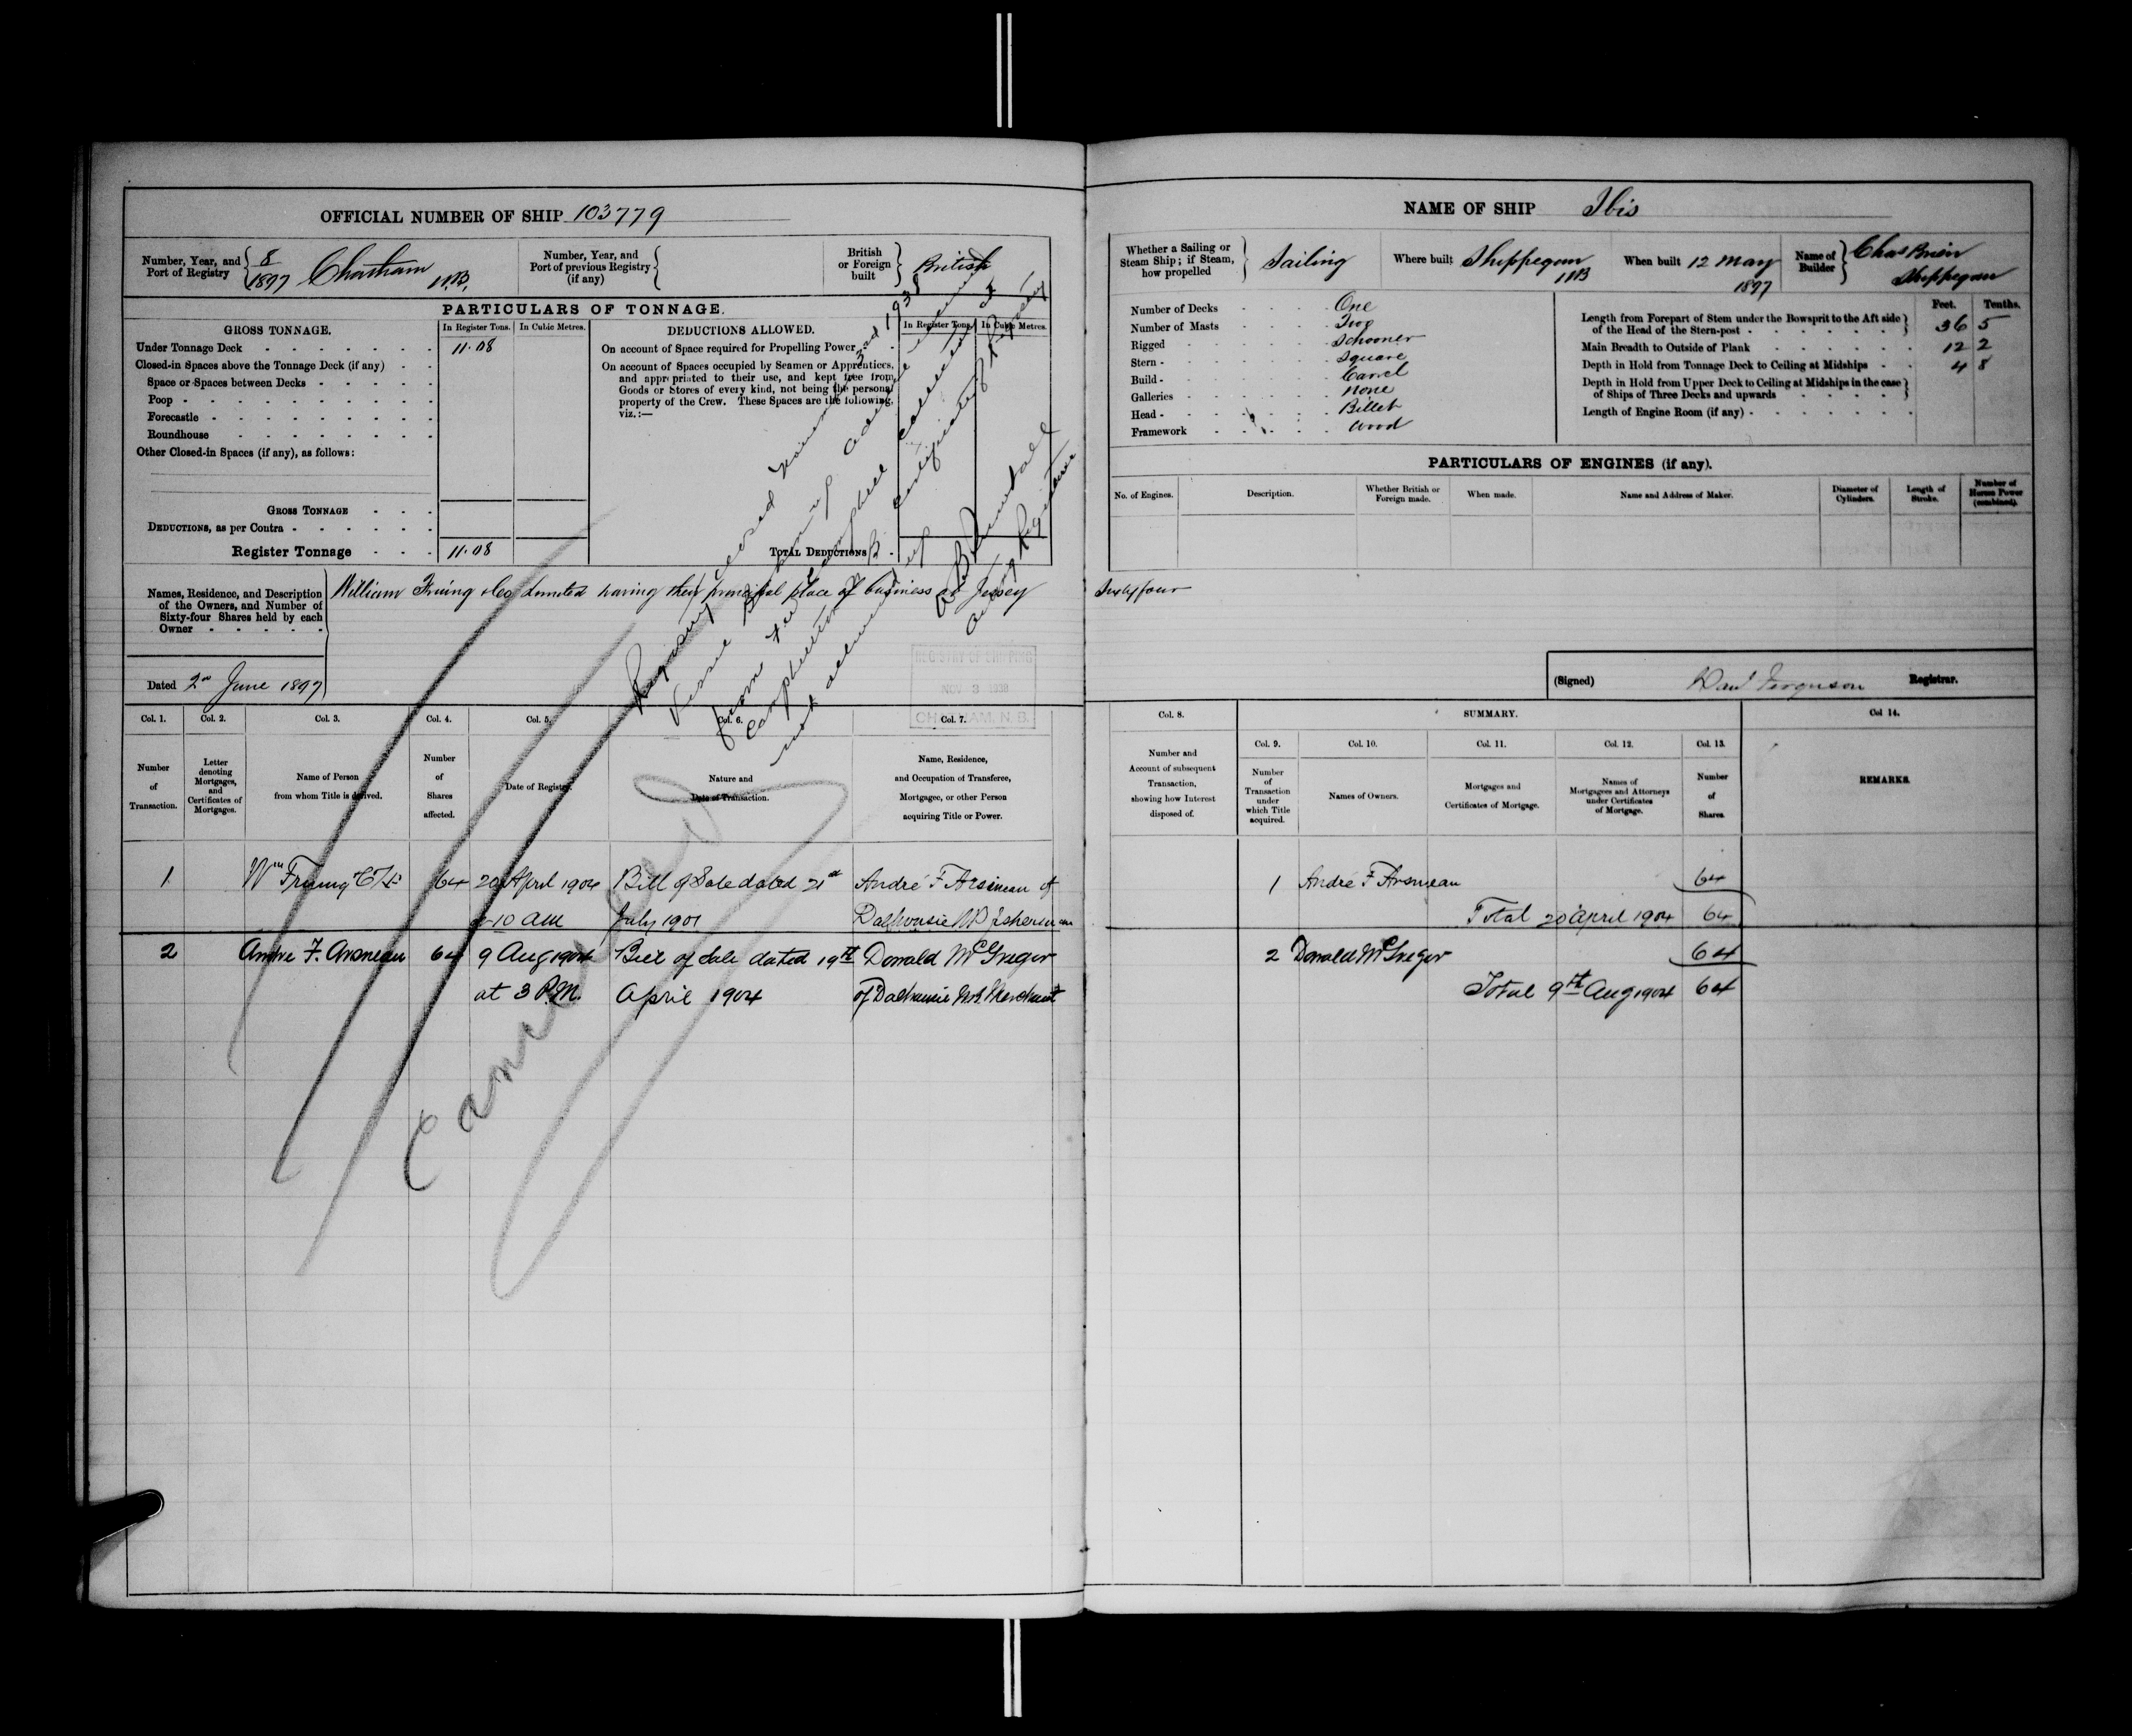 OFFICIAL NUMBER OF SHIP 103779
Number, Year, and Port of Registry
8
1897 Chatham N.B.
Number, Year, and Port of previous Registry (if any)
British or Foreign built
British
PARTICULARS OF TONNAGE.
GROSS TONNAGE.
In Register Tons.
In Cubic Metres.
DEDUCTIONS ALLOWED.
In Register Tons.
In Cubic Metres.
Under Tonnage Deck 11.08
Closed-in Spaces above the Tonnage Deck (if any)
Space or Spaces between Decks
Poop
Forecastle
Roundhouse
Other Closed-in Spaces (if any), as follows:
GROSS TONNAGE
DEDUCTIONS, as per Contra
Register Tonnage 11.08
On account of Space required for Propelling Power
On account of Spaces occupied by Seamen or Apprentices,
and appropriated to their use, and kept free from
Goods or Stores of every kind, not being the personal
property of the Crew. These Spaces are the following,
viz.:—
TOTAL DEDUCTIONS
Names, Residence, and Description
of the Owners, and Number of
Sixty-four Shares held by each
Owner
William Fruing & Co Limited having their principal place of business at Jersey
Dated 2nd June 1897
Registry closed November 3rd 1938
Vessel
from
Campbellton N.B. Certificate of Registry
not
Acting Registrar
REGISTRY OF SHIPPING
NOV 3 1938
CHATHAM, N.B.
Cancelled
Col. 1.
Col. 2.
Col. 3.
Col. 4.
Col. 5.
Col. 6.
Col. 7.
Number of Transaction.
Letter denoting Mortgages, and Certificates of Mortgages.
Name of Person from whom Title is derived.
Number of Shares affected.
Date of Registry.
Nature and Date of Transaction.
Name, Residence, and Occupation of Transferee, Mortgagee, or other Person acquiring Title or Power.
1 Wm Fruing & Co Ld 64 20 April 1904 Bill of Sale dated 21st André F Arsineau of
at 10 AM July 1901 Dalhousie NB Fisherman
2 Andre F. Arsneau 64 9 Aug 1904 Bill of Sale dated 19th Donald McGregor
at 3 P.M. April 1904 of Dalhousie NB Merchant
NAME OF SHIP Ibis
Whether a Sailing or Steam Ship; if Steam, how propelled
Sailing
Where built
Shippegan NB
When built
12 May 1897
Name of Builder
Chas Brien
Shippegan
Number of Decks One
Number of Masts Two
Rigged Schooner
Stern - Square
Build - Carvel
Galleries None
Head - Billet
Framework Wood
Feet. Tenths.
Length from Forepart of Stem under the Bowsprit to the Aft side
of the Head of the Stern-post - 36 5
Main Breadth to Outside of Plank 12 2
Depth in Hold from Tonnage Deck to Ceiling at Midships 4 8
Depth in Hold from Upper Deck to Ceiling at Midships in the case
of Ships of Three Decks and upwards
Length of Engine Room (if any) -
PARTICULARS OF ENGINES (if any).
No. of Engines.
Description.
Whether British or Foreign made.
When made.
Name and Address of Maker.
Diameter of Cylinders.
Length of Stroke.
Number of Horses Power (combined).
Sixty four
(Signed) Danl Ferguson Registrar.
Col. 8.
SUMMARY.
Col 14.
Col. 9.
Col. 10.
Col. 11.
Col. 12.
Col. 13.
Number and Account of subsequent Transaction, showing how Interest disposed of.
Number of Transaction under which Title acquired.
Names of Owners.
Mortgages and Certificates of Mortgage.
Names of Mortgagees and Attorneys under Certificates of Mortgage.
Number of Shares
REMARKS.
1 André F Arsneau 64
Total 20 April 1904 64
2 Donald McGregor 64
Total 9th Aug 1904 64